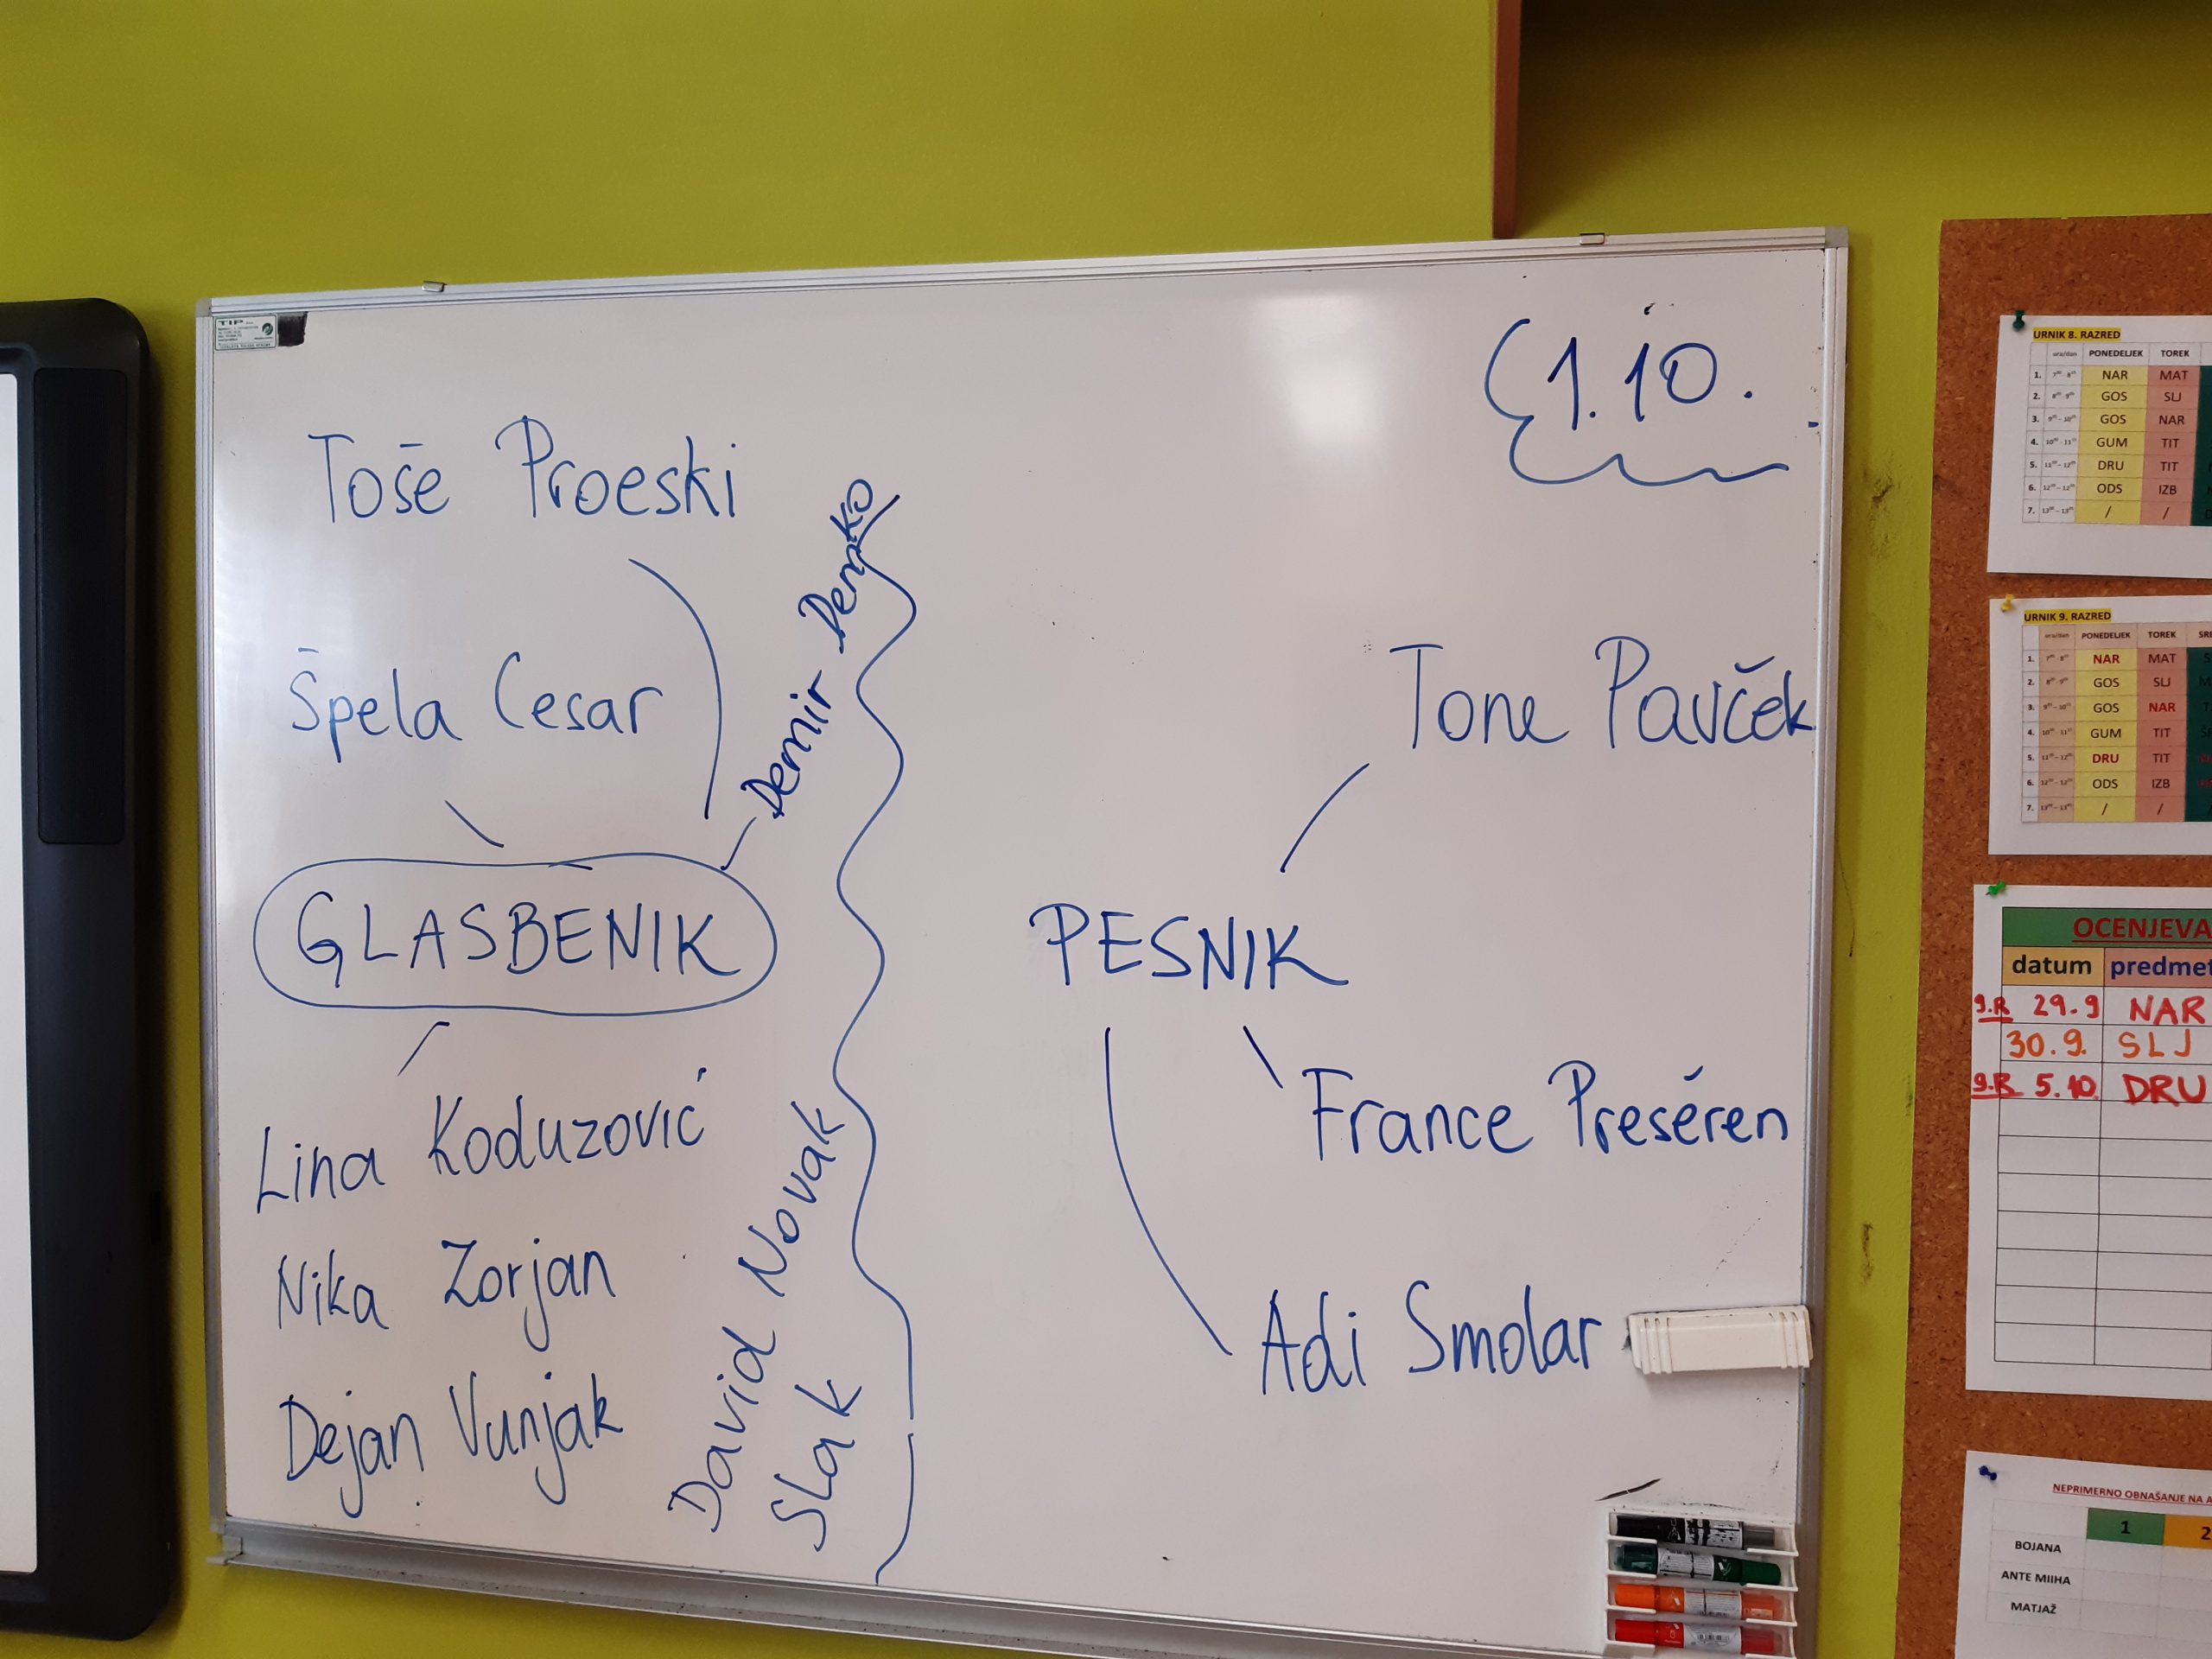 TIP
1.10.
Toše Proeski
Demir Demko
Špela Cesar
Tone Pavček
GLASBENIK
PESNIK
Lina Koduzović
France Preséren
Nika Zorjan
David Novak
Adi Smolar
Dejan Vunjak
Slak
URNIK 8. RAZRED
ura/dan PONEDELJEK TOREK
1. NAR MAT
2. GOS SLJ
3. GOS NAR
4. GUM TIT
5. DRU TIT
6. ODS IZB
7. / /
URNIK 9. RAZRED
ura/dan PONEDELJEK TOREK SRE
1. NAR MAT
2. GOS SLJ
3. GOS NAR
4. GUM TIT
5. DRU TIT
6. ODS IZB
7. / /
OCENJEVA
datum predmet
9.R 29.9 NAR
30.9. SLJ
9.R 5.10. DRU
NEPRIMERNO OBNAŠANJE NA
1 2
BOJANA
ANTE MIIHA
MATJAŽ